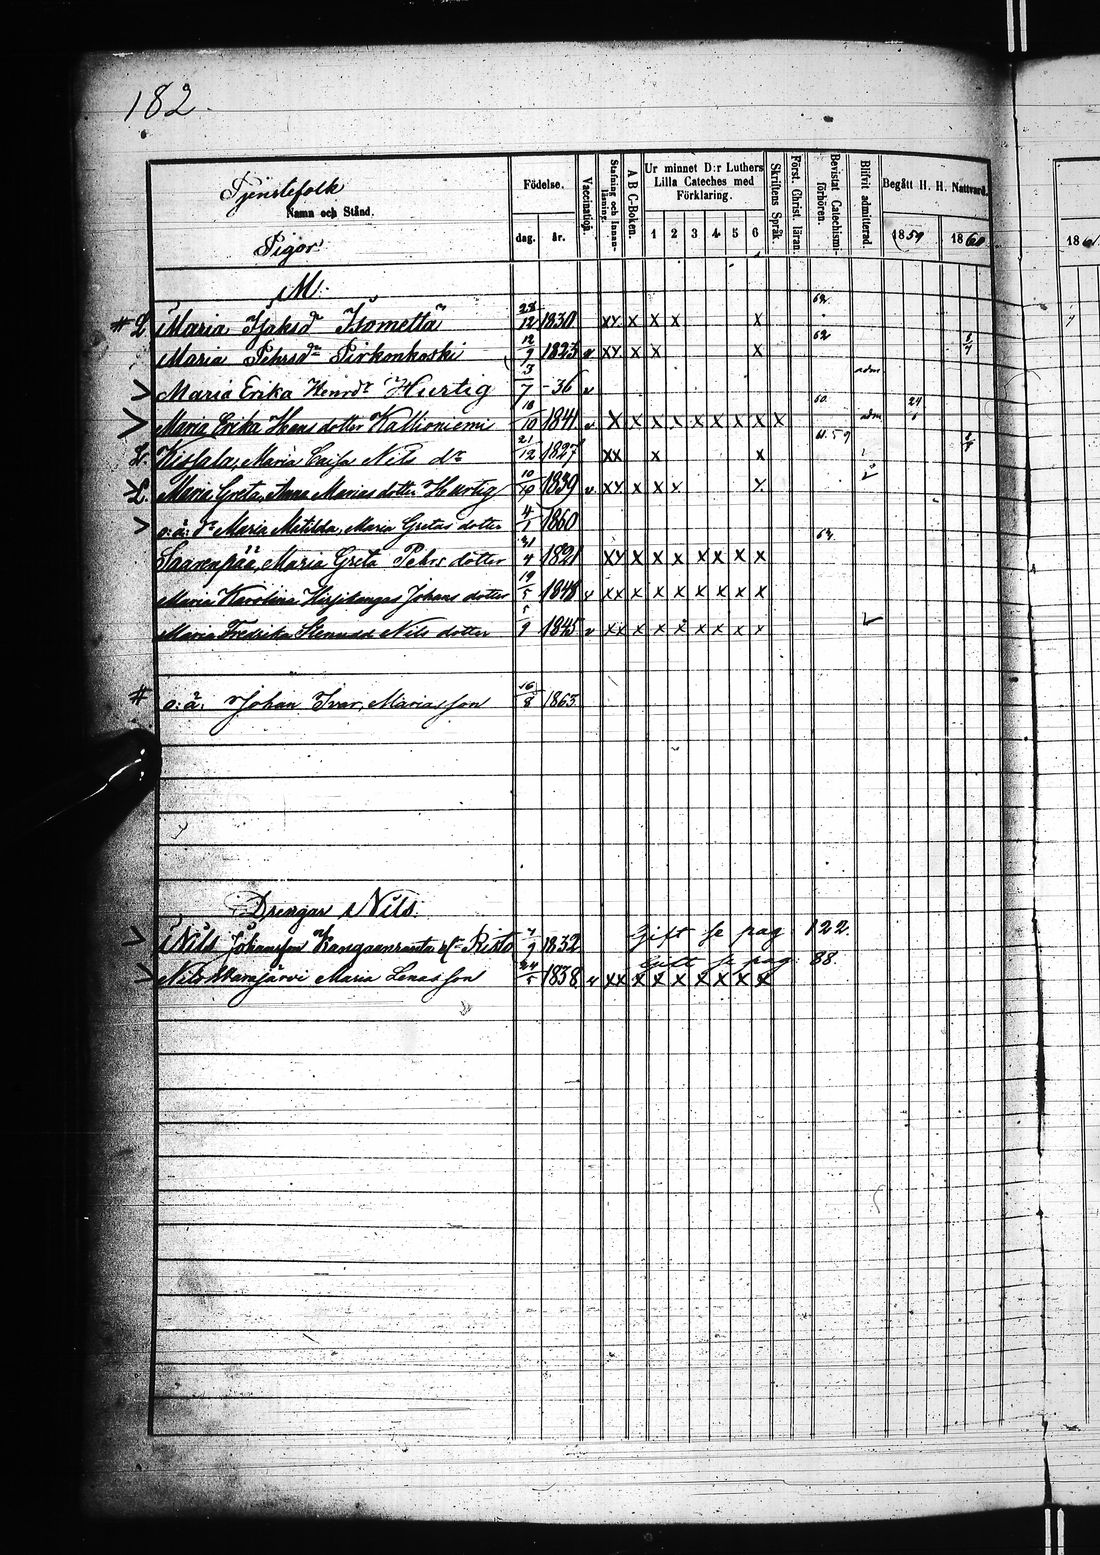 182.
Tjenstefolk
Namn och Stånd.
Pigor
Födelse.
dag. år.
Vaccination.
Stafning och Innanläsning.
A B C-Boken.
Ur minnet D:r Luthers Lilla Cateches med Förklaring.
1 2 3 4 5 6
Skriftens Språk.
Först. Christ. läran.
Bevistat Catechismiförhören.
Blifvit admitterad
Begått H. H. Nattvard.
1859 1860
186
M.
# Maria Isaksdr Isometsä 28/12 1830 x x x x x x 62
Maria Pehrsdr Pirkonkoski 12/9 1823 v x x x x x 62 1/7
Maria Erika Henrdr Hurtig 3/7 -36 v adm
Maria Erika Hansdotter Kallioniemi 10/10 1841 v x x x x x x x x x 60 adm 24
Maria Caisa Nils dr 21/12 1827 x x x x 59 1/7
Maria Greta, Anna Marias dotter Hurtig 10/10 1839 v x x x x x x
o: ä: dr Maria Matilda, Maria Gretas dotter 4/1 1860
Saarenpää, Maria Greta Pehrs dotter 31/4 1821 x x x x x x x x x 62
Maria Karolina Johans dotter 19/5 1848 v x x x x x x x x x
Maria Fredrika Stenudd Nils dotter 5/9 1845 v x x x x x x x x x
# o: ä: Johan Ivar, Marias son 16/8 1863
Drengar Nils.
Nils Johansson Kangaanranta Risto 9 1832 Gift se pag 122.
Nils Maria Lenas son 24/5 1838 v x x x x x x x x x Gift se pag 88